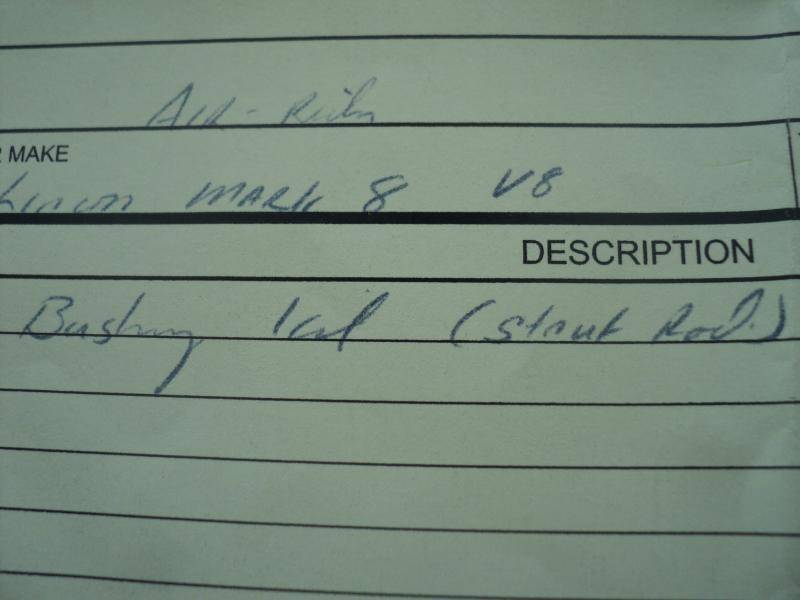 AIR-
MAKE
Lincoln MARK 8 V8
DESCRIPTION
Bushing (Strut Rod.)